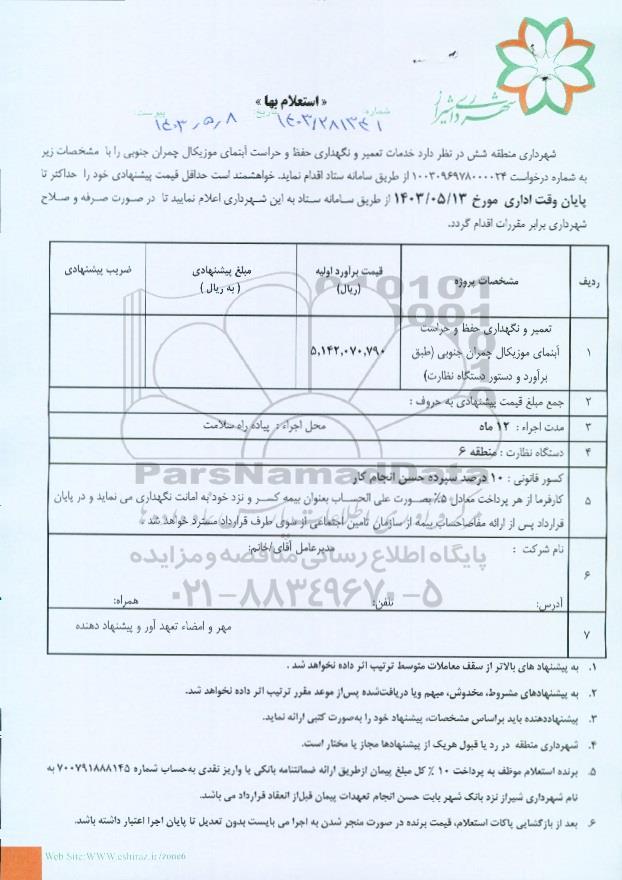 شهرداری شیراز
« استعلام بها »
شماره: ۱۴۰۳/۲۸۱۳۴۱ تاریخ: ۱۴۰۳/۵/۸ پیوست:
شهرداری منطقه شش در نظر دارد خدمات تعمیر و نگهداری حفظ و حراست آبنمای موزیکال چمران جنوبی را با مشخصات زیر
به شماره درخواست ۱۰۰۳۰۹۶۹۷۸۰۰۰۰۲۴ از طریق سامانه ستاد اقدام نماید. خواهشمند است حداقل قیمت پیشنهادی خود را حداکثر تا
پایان وقت اداری مورخ ۱۴۰۳/۰۵/۱۳ از طریق سامانه ستاد به این شهرداری اعلام نمایید تا در صورت صرفه و صلاح
شهرداری برابر مقررات اقدام گردد.
ردیف مشخصات پروژه قیمت برآورد اولیه (ریال) مبلغ پیشنهادی (به ریال) ضریب پیشنهادی
۱ تعمیر و نگهداری حفظ و حراست
آبنمای موزیکال چمران جنوبی (طبق ۵,۱۴۲,۰۷۰,۷۹۰
برآورد و دستور دستگاه نظارت)
۲ جمع مبلغ قیمت پیشنهادی به حروف :
۳ مدت اجراء : ۱۲ ماه محل اجراء : پیاده راه سلامت
۴ دستگاه نظارت : منطقه ۶
کسور قانونی : ۱۰ درصد سپرده حسن انجام کار
۵ کارفرما از هر پرداخت معادل ۵٪ بصورت علی الحساب بعنوان بیمه کسر و نزد خود به امانت نگهداری می نماید و در پایان
قرارداد پس از ارائه مفاصاحساب بیمه از سازمان تامین اجتماعی از سوی طرف قرارداد مسترد خواهد شد .
نام شرکت : مدیرعامل آقای/خانم:
۶
آدرس: تلفن: همراه:
۷ مهر و امضاء تعهد آور و پیشنهاد دهنده
۱. به پیشنهاد های بالاتر از سقف معاملات متوسط ترتیب اثر داده نخواهد شد .
۲. به پیشنهادهای مشروط، مخدوش، مبهم ویا دریافت‌شده پس‌از موعد مقرر ترتیب اثر داده نخواهد شد.
۳. پیشنهاددهنده باید براساس مشخصات، پیشنهاد خود را به‌صورت کتبی ارائه نماید.
۴. شهرداری منطقه در رد یا قبول هریک از پیشنهادها مجاز یا مختار است.
۵. برنده استعلام موظف به پرداخت ۱۰ ٪ کل مبلغ پیمان ازطریق ارائه ضمانتنامه بانکی یا واریز نقدی به‌حساب شماره ۷۰۰۷۹۱۸۸۸۱۴۵ به
نام شهرداری شیراز نزد بانک شهر بابت حسن انجام تعهدات پیمان قبل‌از انعقاد قرارداد می باشد.
۶. بعد از بازگشایی پاکات استعلام، قیمت برنده در صورت منجر شدن به اجرا می بایست بدون تعدیل تا پایان اجرا اعتبار داشته باشد.
Web Site:WWW.eshiraz.ir/zone6
ParsNamadData
پایگاه اطلاع رسانی مناقصه و مزایده
۰۲۱-۸۸۳۴۹۶۷۰-۵